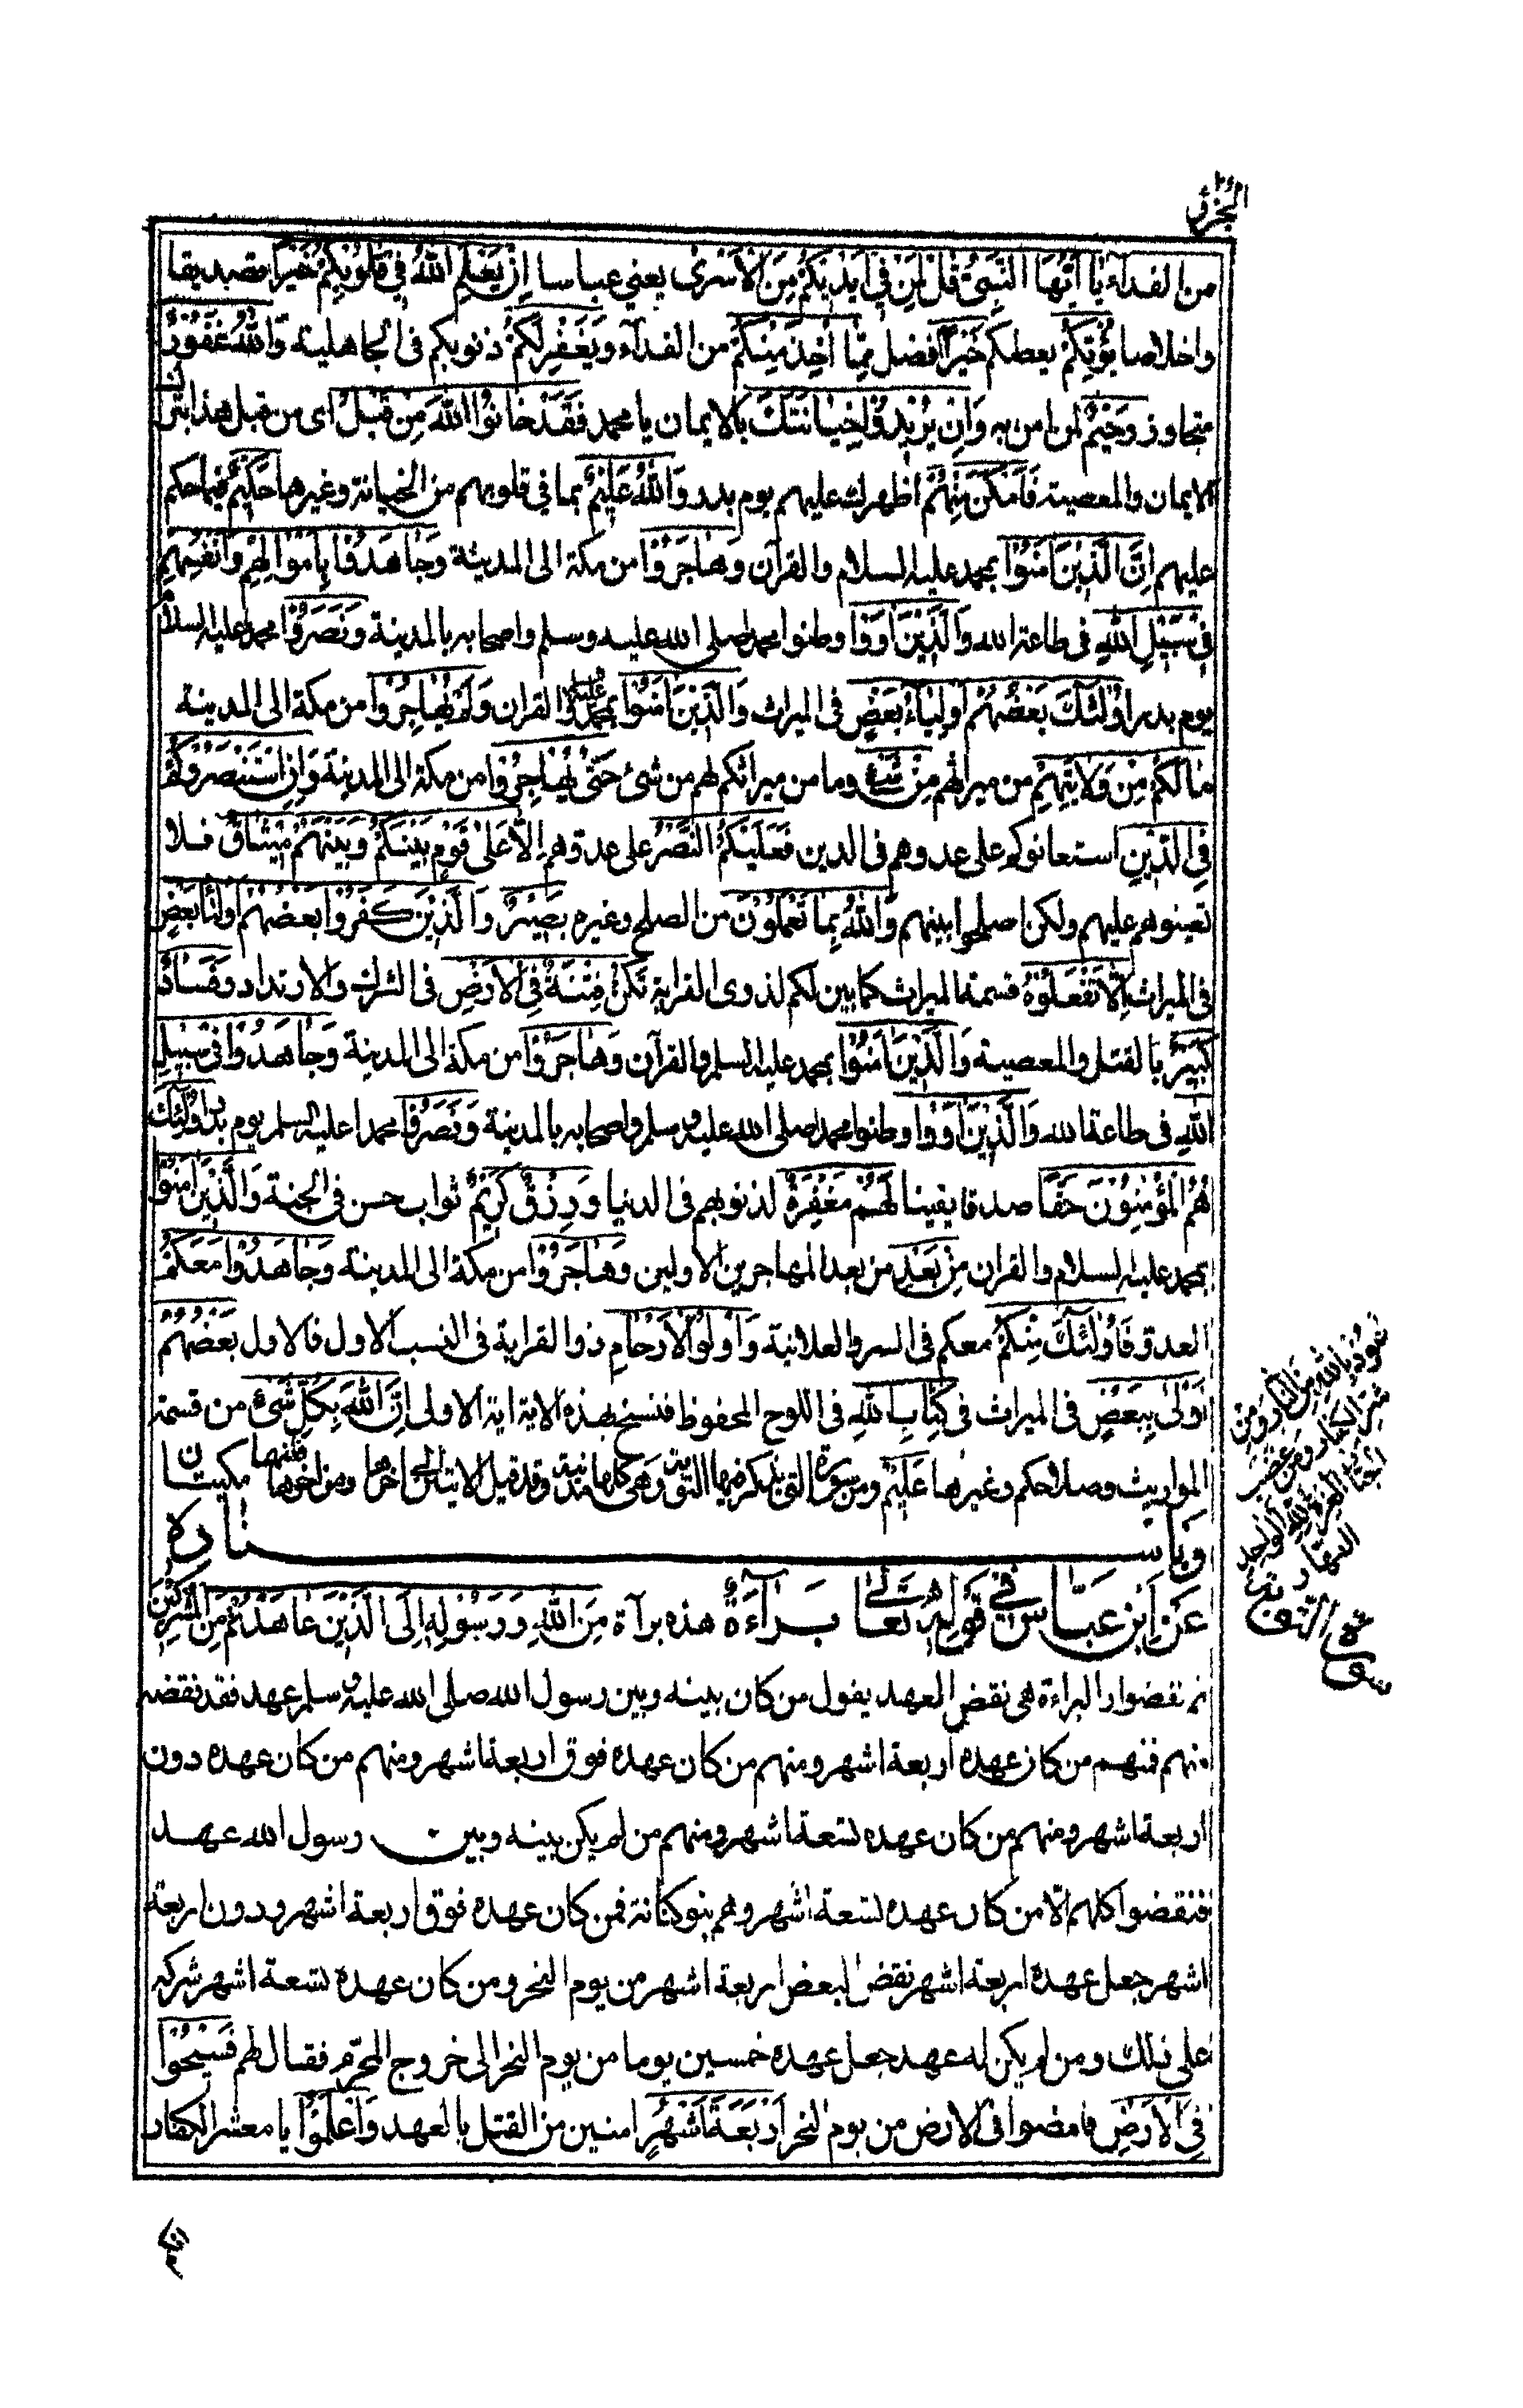 الجزء
من الفداء يَا اَيُّهَا النَّبِىُّ قُلْ لِمَنْ فِى اَيْدِيْكُمْ مِنَ الْاَسْرٰى يعني عباسا اِنْ يَعْلَمِ اللّٰهُ فِي قُلُوْبِكُمْ خَيْرًا تصديقا
واخلاصا يُؤْتِكُمْ يعطكم خَيْرًا افضل مِمَّا اُخِذَ مِنْكُمْ من الفدآء وَيَغْفِرْ لَكُمْ ذنوبكم فى الجاهلية وَاللّٰهُ غَفُوْرٌ
متجاوز رَحِيْمٌ لمن امن به وَاِنْ يُرِيْدُوْا خِيَانَتَكَ بالايمان يا محمد فَقَدْ خَانُوا اللّٰهَ مِنْ قَبْلُ اى من قبل هذا بترك
الايمان والمعصية فَاَمْكَنَ مِنْهُمْ اظهرك عليهم يوم بدر وَاللّٰهُ عَلِيْمٌ بما في قلوبهم من الخيانة وغيرها حَكِيْمٌ فيما حكم
عليهم اِنَّ الَّذِيْنَ اٰمَنُوْا بمحمد عليه السلام والقرآن وَهَاجَرُوْا من مكة الى المدينة وَجَاهَدُوْا بِاَمْوَالِهِمْ وَاَنْفُسِهِمْ
فِى سَبِيْلِ اللّٰهِ فى طاعة الله وَالَّذِيْنَ اٰوَوْا وطنوا محمد صلى الله عليه وسلم واصحابه بالمدينة وَنَصَرُوْا محمدا عليه السلام
يوم بدر اُولٰئِكَ بَعْضُهُمْ اَوْلِيَاءُ بَعْضٍ فى الميراث وَالَّذِيْنَ اٰمَنُوْا بمحمد عليه والقران وَلَمْ يُهَاجِرُوْا من مكة الى المدينة
مَا لَكُمْ مِنْ وَلَايَتِهِمْ من ميراثهم مِنْ شَىْءٍ وما من ميراثكم لهم من شئ حَتّٰى يُهَاجِرُوْا من مكة الى المدينة وَاِنِ اسْتَنْصَرُوْكُمْ
فِى الدِّيْنِ استعانوكم على عدوهم فى الدين فَعَلَيْكُمُ النَّصْرُ على عدوهم اِلَّا عَلٰى قَوْمٍ بَيْنَكُمْ وَبَيْنَهُمْ مِيْثَاقٌ فلا
تعينوهم عليهم ولكن اصلحوا بينهم وَاللّٰهُ بِمَا تَعْمَلُوْنَ من الصلح وغيره بَصِيْرٌ وَالَّذِيْنَ كَفَرُوْا بَعْضُهُمْ اَوْلِيَاءُ بَعْضٍ
فى الميراث اِلَّا تَفْعَلُوْهُ قسمة الميراث كما بين لكم لذوى القرابة تَكُنْ فِتْنَةٌ فِى الْاَرْضِ فى الشرك والارتداد وَفَسَادٌ
كَبِيْرٌ بالقتل والمعصية وَالَّذِيْنَ اٰمَنُوْا بمحمد عليه السلم والقرآن وَهَاجَرُوْا من مكة الى المدينة وَجَاهَدُوْا فِى سَبِيْلِ
اللّٰهِ فى طاعة الله وَالَّذِيْنَ اٰوَوْا وطنوا محمد صلى الله عليه وسلم واصحابه بالمدينة وَنَصَرُوْا محمدا عليه السلم يوم بدر اُولٰئِكَ
هُمُ الْمُؤْمِنُوْنَ حَقًّا صدقا يقينا لَهُمْ مَغْفِرَةٌ لذنوبهم فى الدنيا وَرِزْقٌ كَرِيْمٌ ثواب حسن فى الجنة وَالَّذِيْنَ اٰمَنُوْا
بمحمد عليه السلام والقران مِنْ بَعْدُ من بعد المهاجرين الاولين وَهَاجَرُوْا من مكة الى المدينة وَجَاهَدُوْا مَعَكُمْ
العدو فَاُولٰئِكَ مِنْكُمْ معكم فى السر والعلانية وَاُولُوا الْاَرْحَامِ ذوا القرابة فى النسب الاول فالاول بَعْضُهُمْ
اَوْلٰى بِبَعْضٍ فى الميراث فِى كِتَابِ اللّٰهِ فى اللوح المحفوظ فنسخ بهذه الاية اية الاولى اِنَّ اللّٰهَ بِكُلِّ شَىْءٍ من قسمة
المواريث وصلاحكم وغيرها عَلِيْمٌ ومن سورة التى يذكر فيها التوبة وهى كلها مدنية وقد قيل الا يتان الى اخرها فانهما مكيتان
وباسناده
عَنِ ابْنِ عَبَّاسٍ فِي قَوْلِهِ تَعَالٰى بَرَآءَةٌ هذه برآة مِنَ اللّٰهِ وَرَسُوْلِهِ اِلَى الَّذِيْنَ عَاهَدْتُمْ مِنَ الْمُشْرِكِيْنَ
ثم نقضوا والبراءة هى نقض العهد يقول من كان بينه وبين رسول الله صلى الله عليه وسلم عهد فقد نقضه
منهم فمنهم من كان عهده اربعة اشهر ومنهم من كان عهده فوق اربعة اشهر ومنهم من كان عهده دون
اربعة اشهر ومنهم من كان عهده تسعة اشهر ومنهم من لم يكن بينه وبين رسول الله عهد
فنقضوا كلهم الا من كان عهده تسعة اشهر وهم بنو كنانة فمن كان عهده فوق اربعة اشهر ودون اربعة
اشهر جعل عهده اربعة اشهر نقض البعض اربعة اشهر من يوم النحر ومن كان عهده تسعة اشهر تركه
على ذلك ومن لم يكن له عهد جعل عهده خمسين يوما من يوم النحر الى خروج المحرم فقال لهم فَسِيْحُوْا
فِى الْاَرْضِ فامضوا فى الارض من يوم النحر اَرْبَعَةَ اَشْهُرٍ امنين من القتل بالعهد وَاعْلَمُوْا يا معشر الكفار
نعوذ بالله من النار ومن
شر الكفار ومن غضب
الجبار العزة لله الواحد
القهار
سورة التوبة